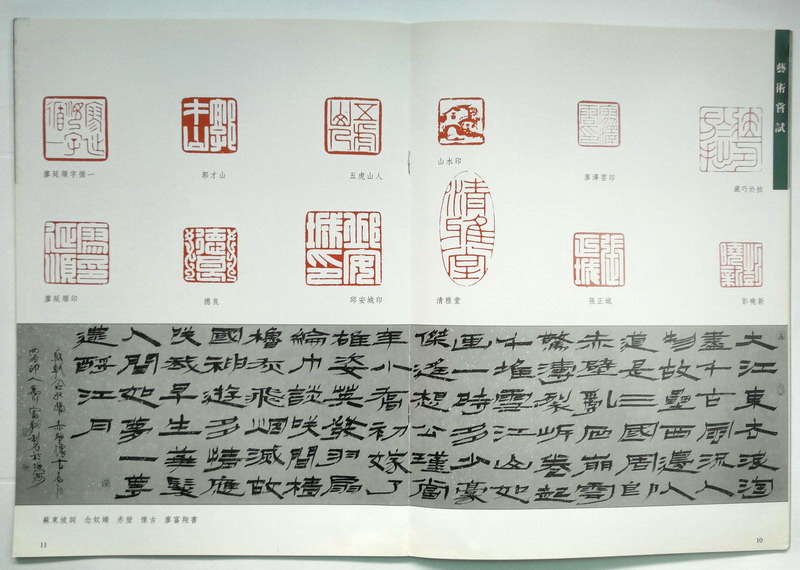 藝術嘗試
山水印
廖澤雲印
藏巧於拙
清雅堂
張正城
彭曉新
廖延順字循一
郭才山
五虎山人
廖延順印
德良
邱安城印
大江東去浪淘
盡千古風流人
物故壘西邊人
道是三國周郎
赤壁亂石崩雲
驚濤裂岸卷起
千堆雪江山如
画一時多少豪
傑遙想公瑾當
年小喬初嫁了
雄姿英發羽扇
綸巾談笑間檣
櫓灰飛烟滅故
國神遊多情應
笑我早生華髮
人間如夢一尊
還酹江月
蘇東坡詞 念奴嬌 赤壁 懷古 廖富翔書
10
11